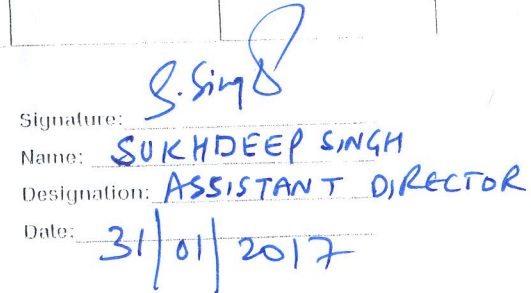 Signature: S. Singh
Name: SUKHDEEP SINGH
Designation: ASSISTANT DIRECTOR
Date: 31/01/2017